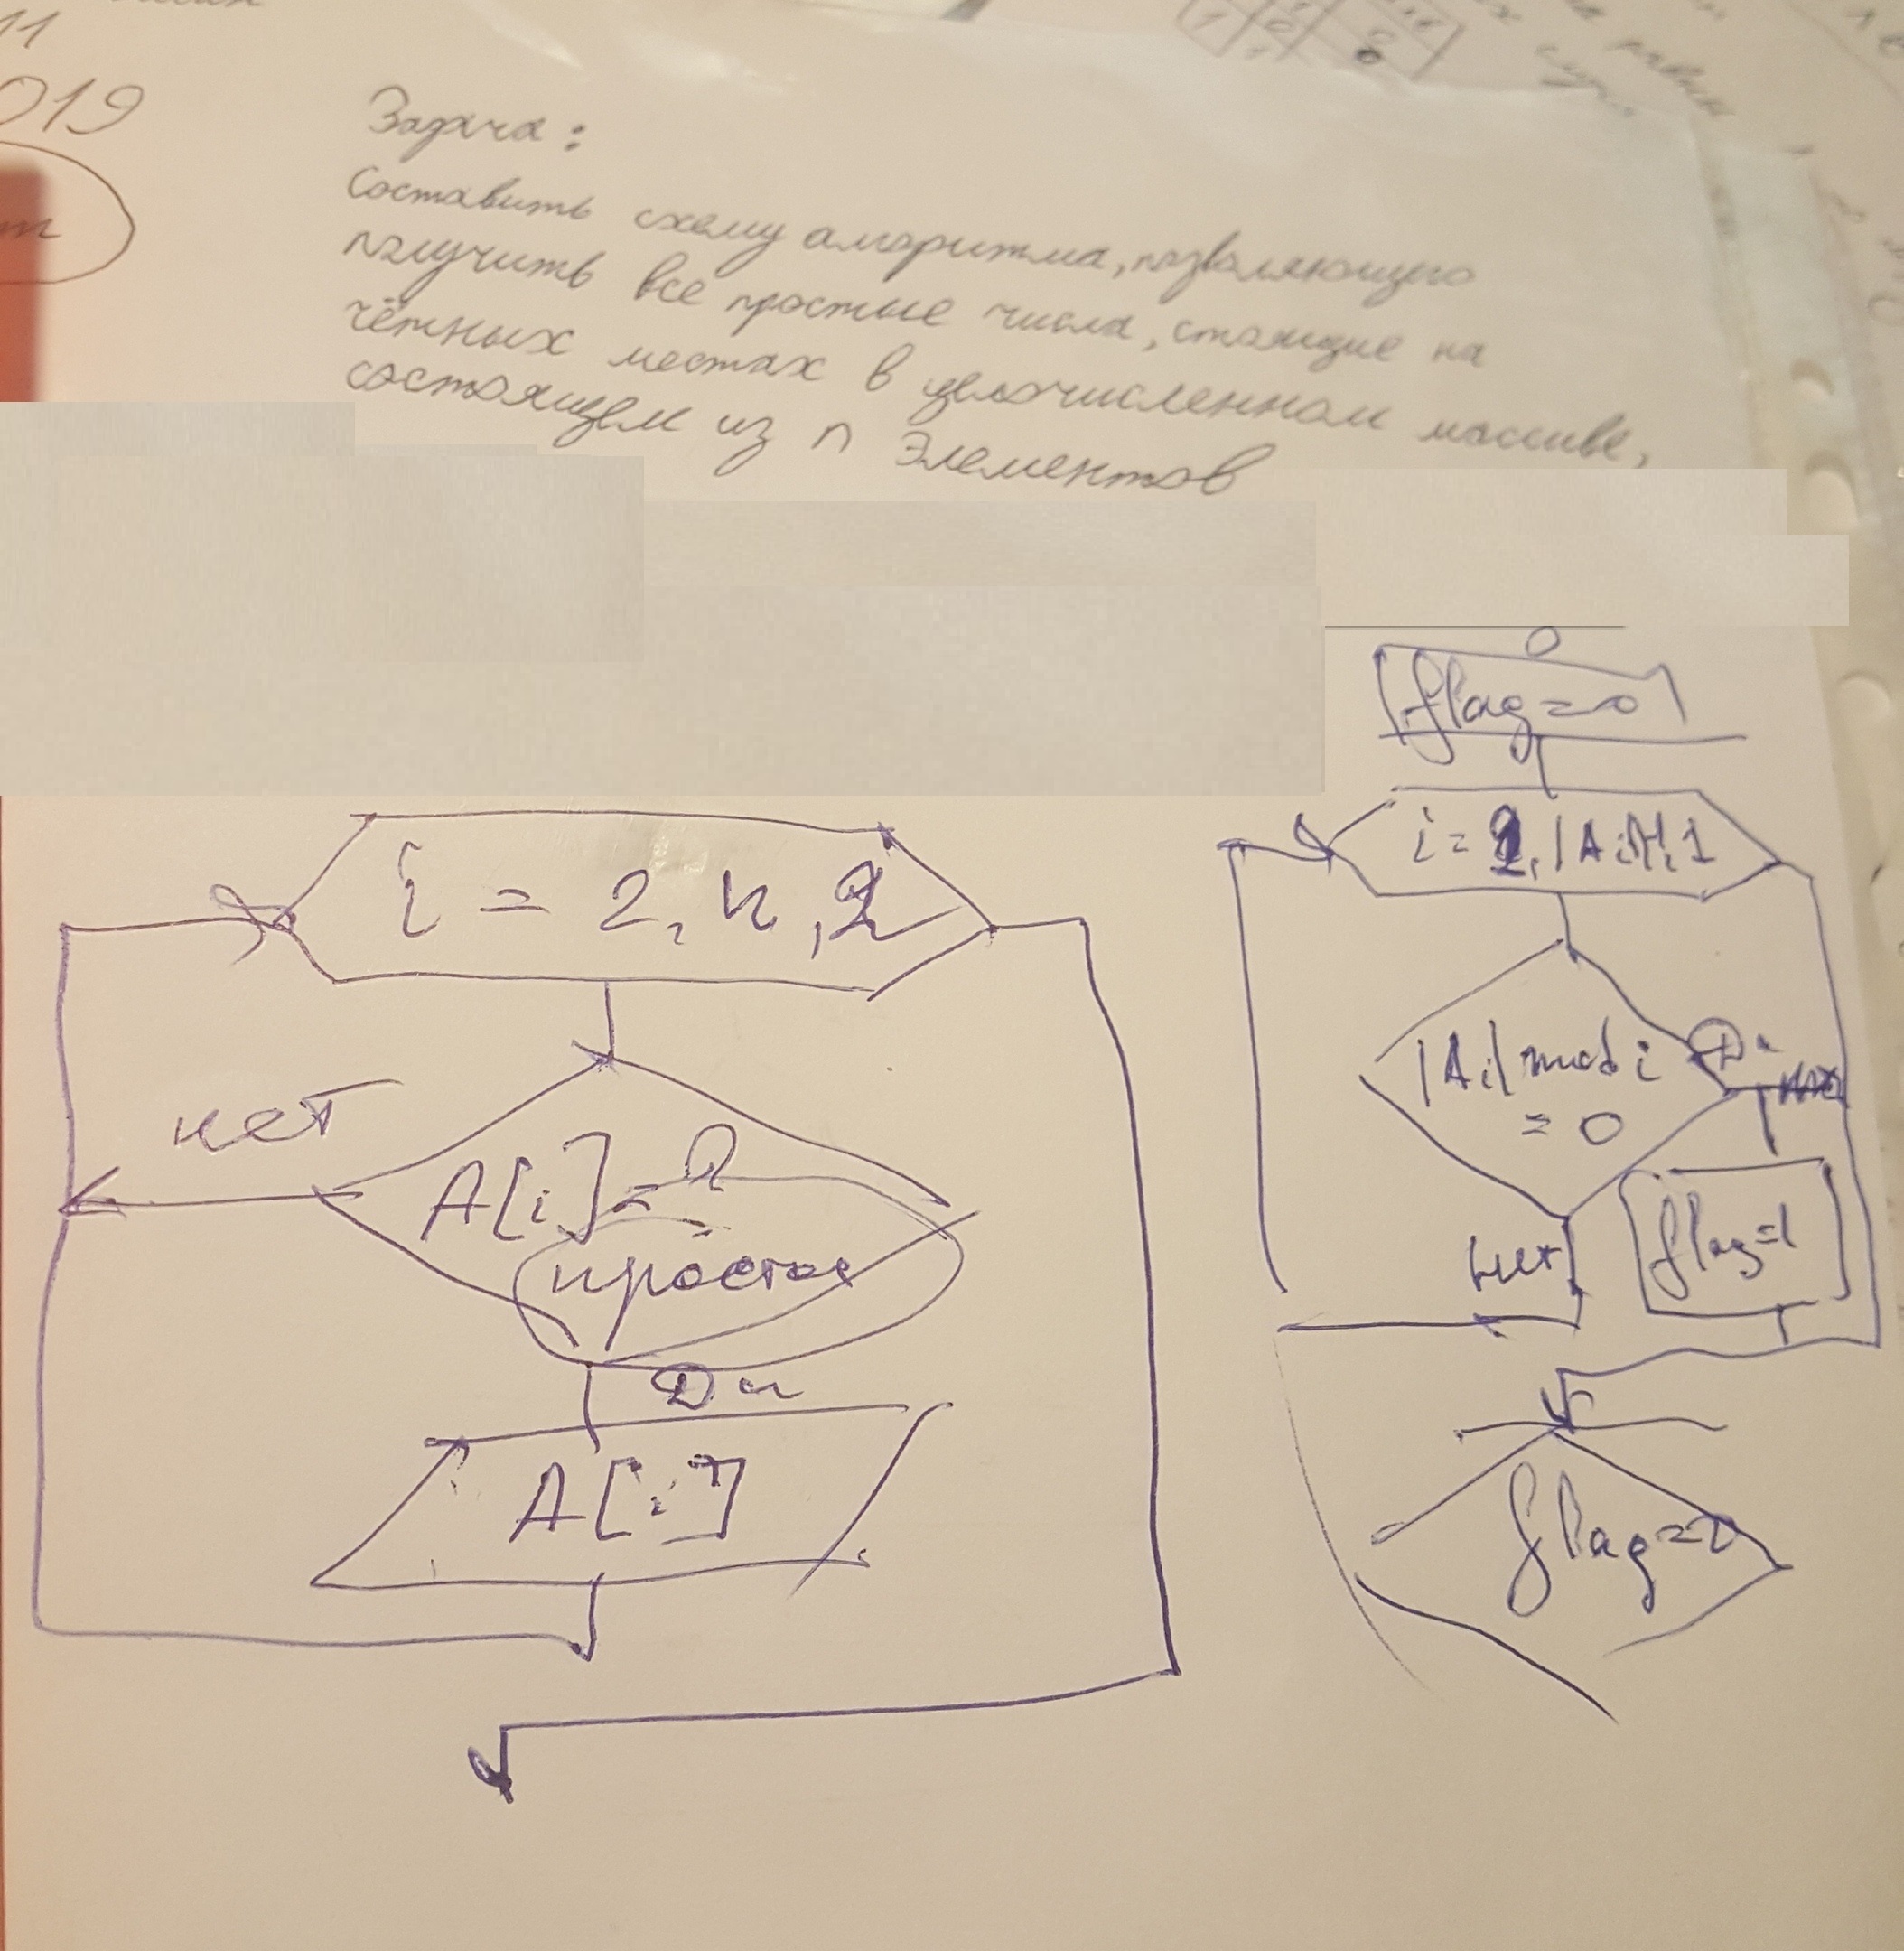 11
019
Задача:
Составить схему алгоритма, позволяющего
получить все простые числа, стоящие на
чётных местах в целочисленном массиве,
состоящем из n элементов
i = 2, n, 2
нет
A[i] -
простое
Да
A[i]
flag=0
|Ai| mod i
= 0
Да
нет
flag=1